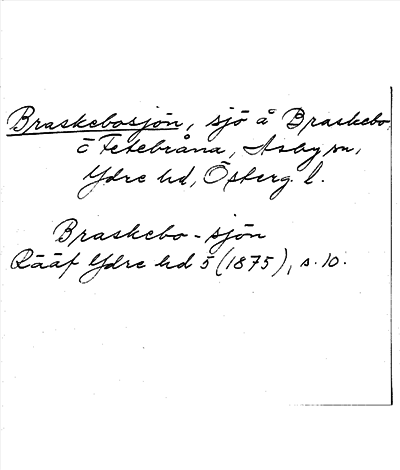 Braskebosjön, sjö å Braskebo
o Fetebråna, Asby sn,
Ydre hd, Österg. l.
Braskebo-sjön
Rääf Ydre hd 5 (1875), s. 10.